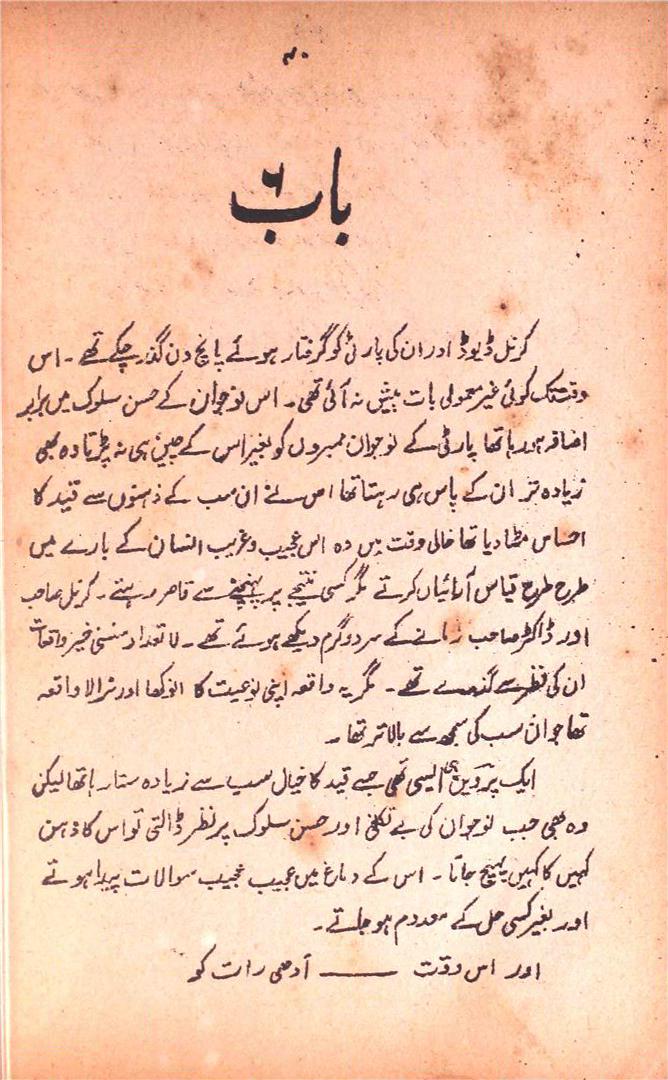 ۷۰
باب ۶
کرنل ڈیوڈ اور ان کی پارٹی کو گرفتار ہوئے پانچ دن گذر چکے تھے ۔ اس
وقت تک کوئی غیر معمولی بات پیش نہ آئی تھی ۔ اس نوجوان کے حسن سلوک میں برابر
اضافہ ہو رہا تھا پارٹی کے نوجوان ممبروں کو بغیر اس کے چین ہی نہ پڑتا وہ بھی
زیادہ تر ان کے پاس ہی رہتا تھا اس لئے ان سب کے ذہنوں سے قید کا
احساس مٹا دیا تھا خالی وقت میں وہ اس عجیب و غریب انسان کے بارے میں
طرح طرح قیاس آرائیاں کرتے مگر کسی نتیجے پر پہنچنے سے قاصر رہتے ۔ کرنل صاحب
اور ڈاکٹر صاحب زمانے کے سرد و گرم دیکھے ہوئے تھے ۔ لا تعداد سنسنی خیز واقعات
ان کی نظر سے گذرے تھے ۔ مگر یہ واقعہ اپنی نوعیت کا انوکھا اور نرالا واقعہ
تھا جو ان سب کی سمجھ سے بالا تر تھا ۔
ایک پروین ہی ایسی تھی جسے قید کا خیال سب سے زیادہ ستا رہا تھا لیکن
وہ بھی جب نوجوان کی بے تکلفی اور حسن سلوک پر نظر ڈالتی تو اس کا ذہن
کہیں کا کہیں پہنچ جاتا ۔ اس کے دماغ میں عجیب عجیب سوالات پیدا ہوتے
اور بغیر کسی حل کے معدوم ہو جاتے ۔
اور اس وقت —— آدھی رات کو